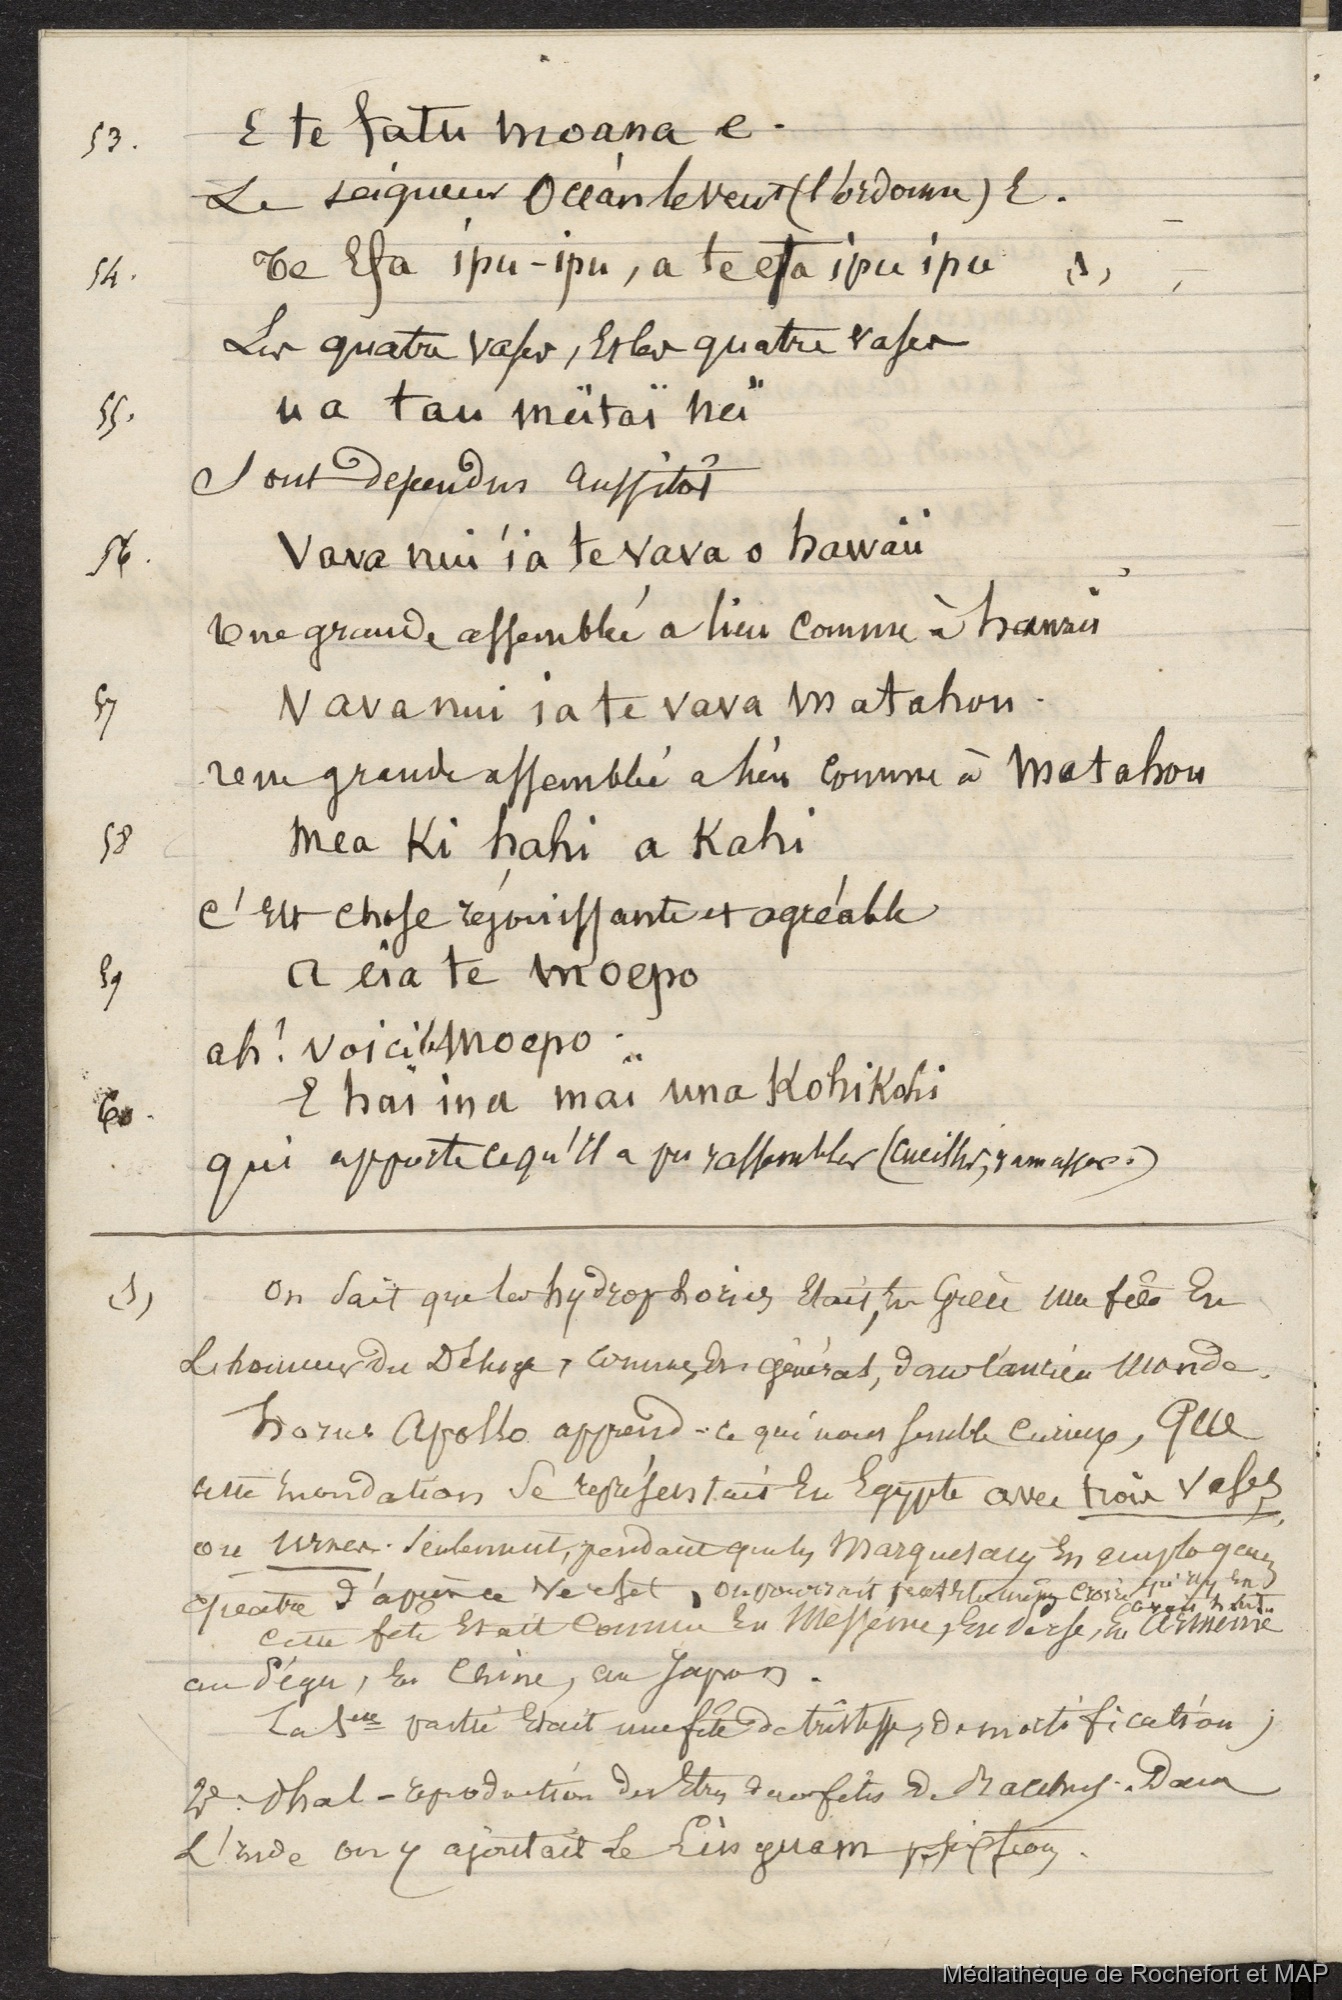 53. E te fatu moana e.
Le seigneur Océan le veut (l'ordonne) E.
54. Te Efa ipu-ipu, a te efa ipu ipu (1)
Les quatre vases, Et les quatre vases
55. ua tau meïtaï heï
Sont dependus aussitôt
56. Vava nui ia te vava o hawaïi
Une grande assemblée a lieu comme à hawaii
57 Vava nui ia te vava Matahou.
une grande assemblée a lieu comme à Matahou
58 Mea Ki hahi a Kahi
C'est chose réjouissante et agréable
59 A eïa te Moepo
ah! voici le Moepo.
60. E haï ina maï una Kohikohi
qui apporte ce qu'il a pu rassembler (cueillir, ramasser.)
(1) On sait que les hydrophories Etait, En Grèce une fête En
L'honneur du Déluge, comme, En général, dans l'ancien Monde.
horus Apollo apprend - ce qui nous semble curieux, Que
cette inondation se représentait En Egypte avec trois Vases
ou urnes. Seulement, pendant que les Marquesans En
quatre d'après ce Verset, on pourrait croire qu'ils En
cette fête Etait connue En Messenie, En Perse, En Armenie
au Pégu, En Chine, au Japon.
La 1ere partie Etait une fête de tristesse, de mortification;
2e. Phal - reproduction des Etres dans fêtes de Bacchus. Dans
L'inde on y ajoutait le Linguam
Médiathèque de Rochefort et MAP